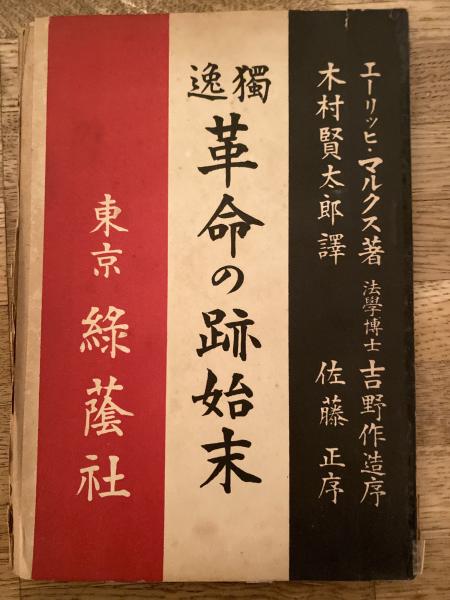 エーリッヒ・マルクス著 法學博士 吉野作造序
木村賢太郎譯 佐藤正序
獨逸
革命の跡始末
東京 綠蔭社